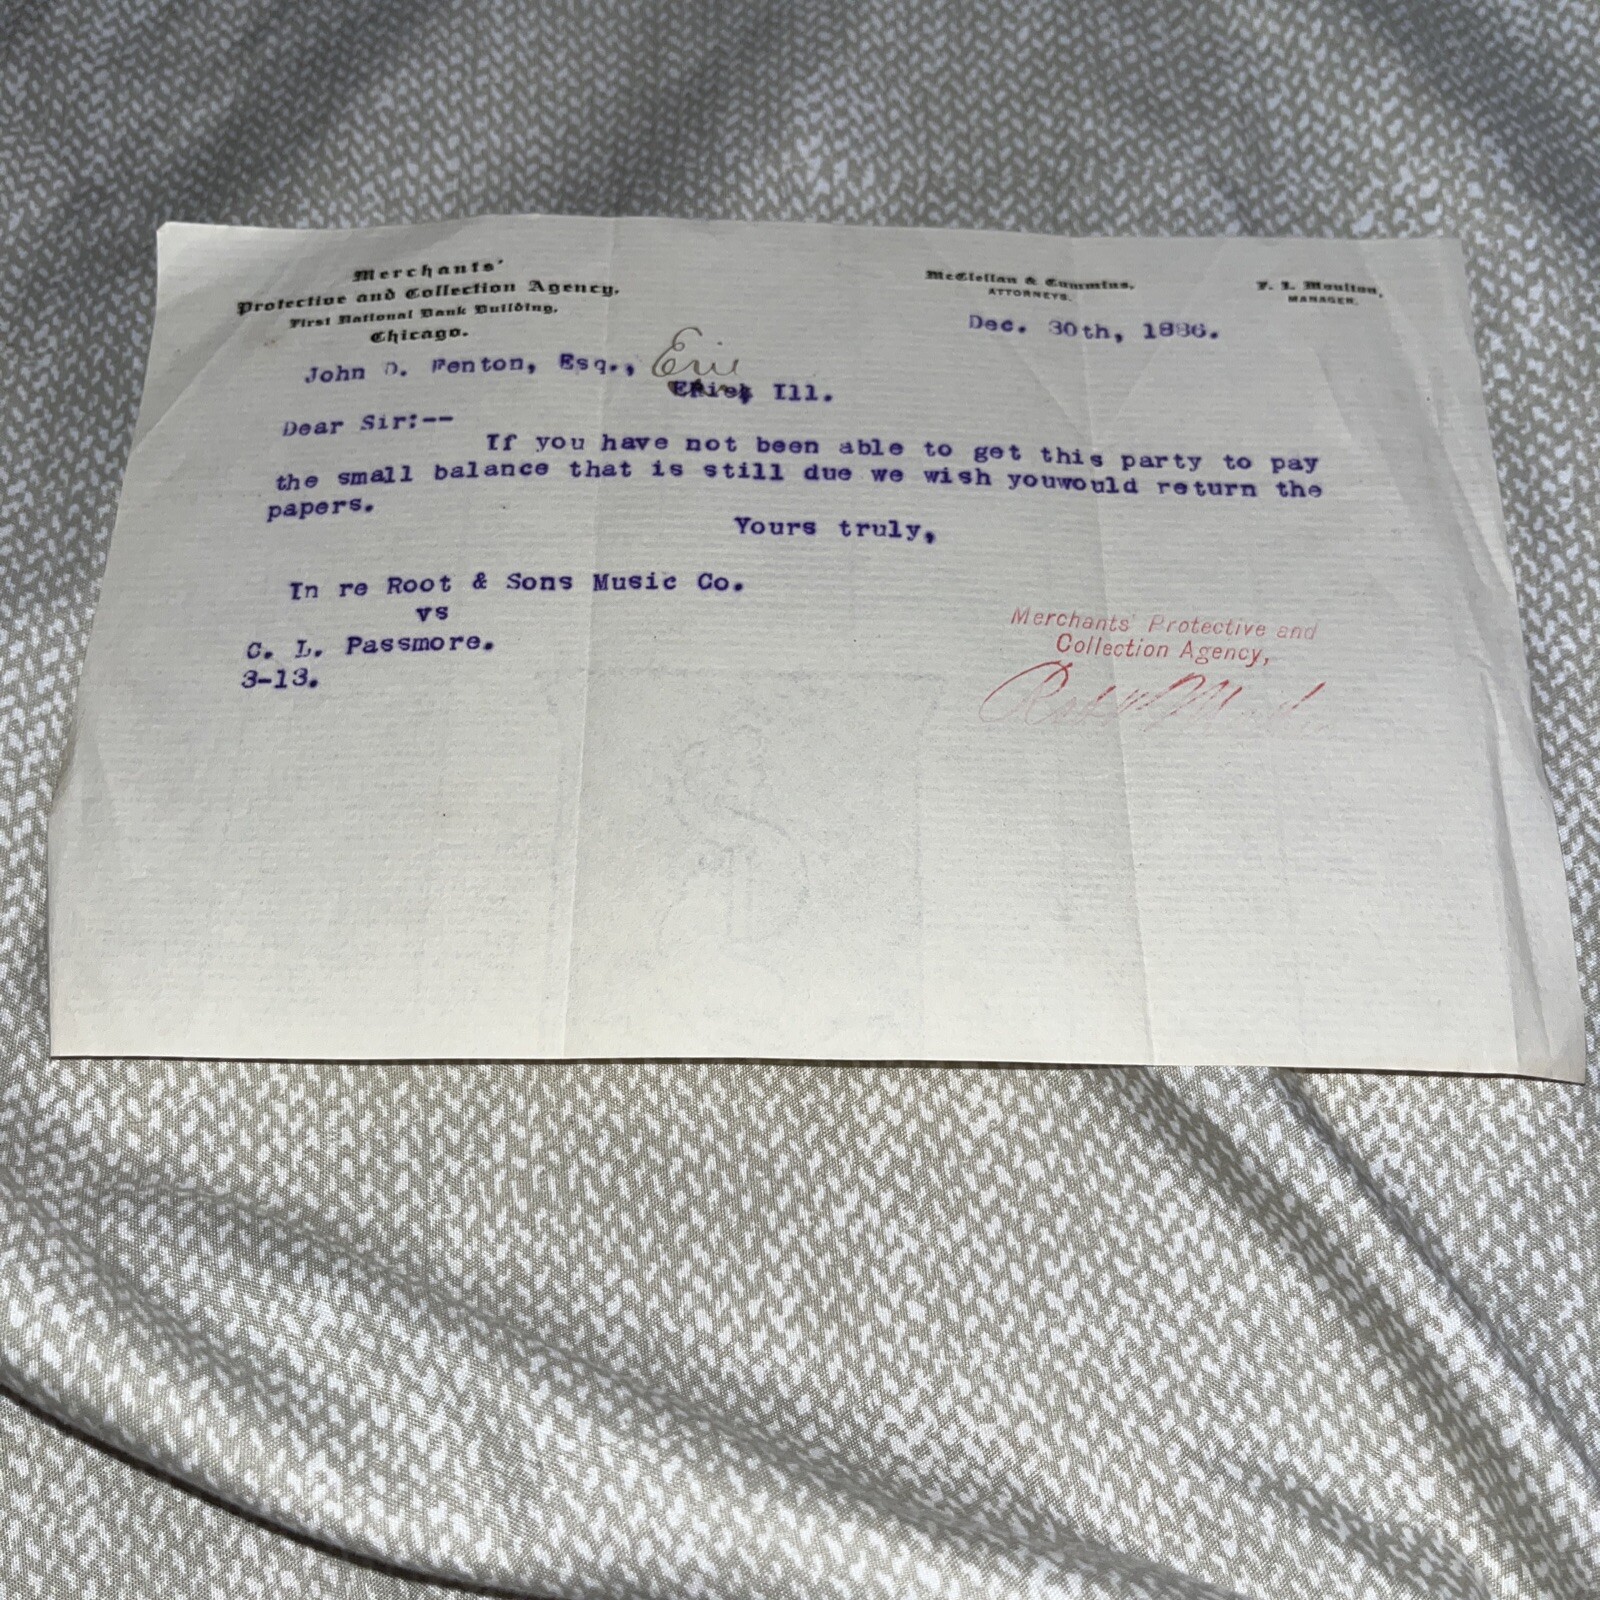 Merchants'
Protective and Collection Agency,
First National Bank Building,
Chicago.
McClellan & Cummins,
ATTORNEYS.
F. L. Moulton,
MANAGER.
Dec. 30th, 1886.
John D. Fenton, Esq., Erie
Ill.
Dear Sir:--
If you have not been able to get this party to pay
the small balance that is still due we wish youwould return the
papers.
Yours truly,
In re Root & Sons Music Co.
vs
C. L. Passmore.
3-13.
Merchants' Protective and
Collection Agency,